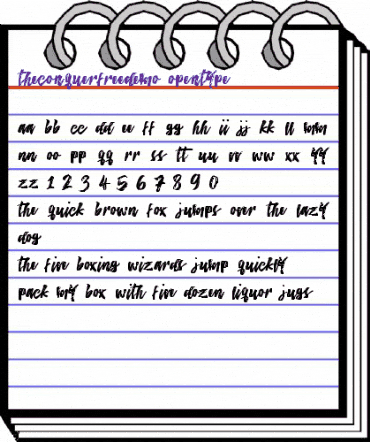 theconquerfreedemo opentype
aa bb cc dd ee ff gg hh ii jj kk ll mm
nn oo pp qq rr ss tt uu vv ww xx yy
zz 1 2 3 4 5 6 7 8 9 0
the quick brown fox jumps over the lazy
dog
the five boxing wizards jump quickly
pack my box with five dozen liquor jugs